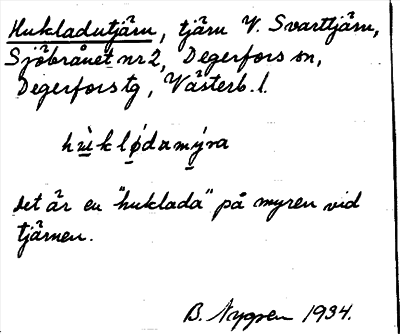 Hukladutjärn, tjärn V. Svarttjärn,
Sjöbrånet nr 2, Degerfors sn,
Degerfors tg, Västerb. l.
hùklǿdamýra
det är en "huklada" på myren vid
tjärnen.
B. Nygren 1934.